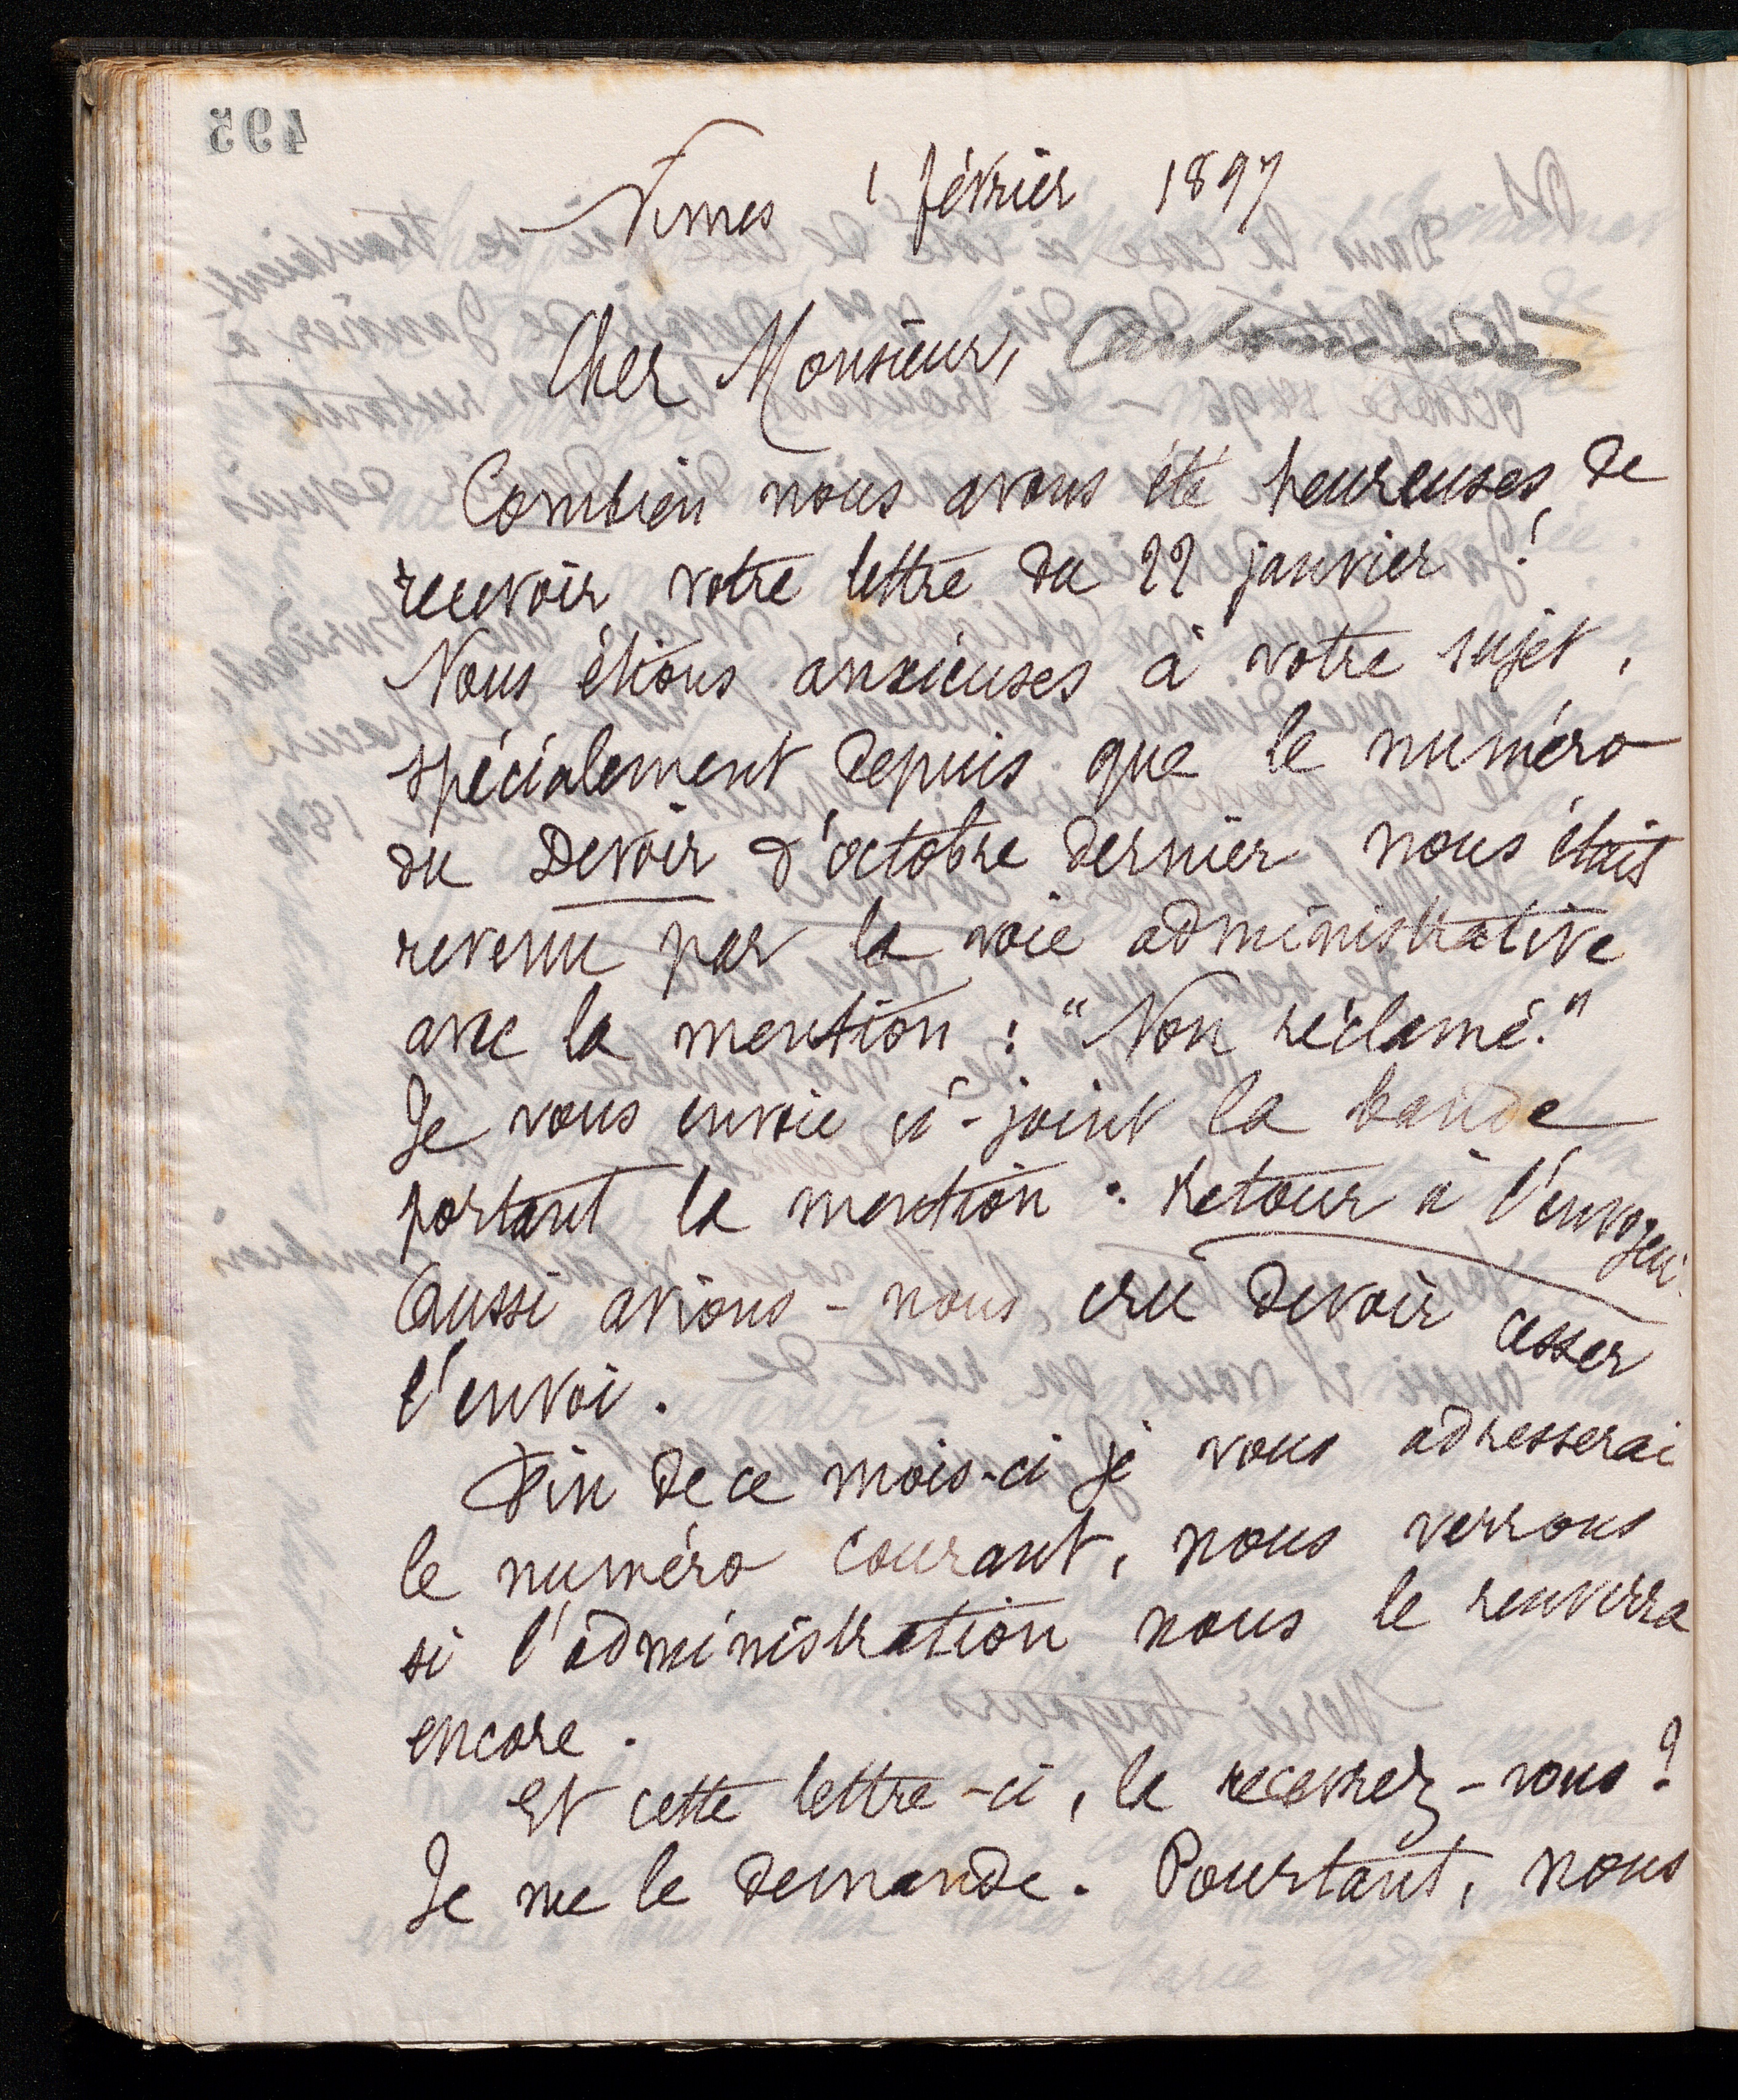 495
Nimes 1 février 1897
Cher Monsieur,
Combien nous avons été heureuses de
recevoir votre lettre du 22 janvier !
Nous étions anxieuses à votre sujet,
spécialement depuis que le numéro
du Devoir d'octobre dernier nous était
revenu par la voie administrative
avec la mention : "Non réclamé."
Je vous envoie ci-joint la bande
portant la mention : Retour à l'envoyeur.
Aussi avions-nous cru devoir cesser
l'envoi.
Fin de ce mois-ci je vous adresserai
le numéro courant, nous verrons
si l'administration nous le renverra
encore.
Et cette lettre-ci, la recevrez-vous ?
Je me le demande. Pourtant, nous